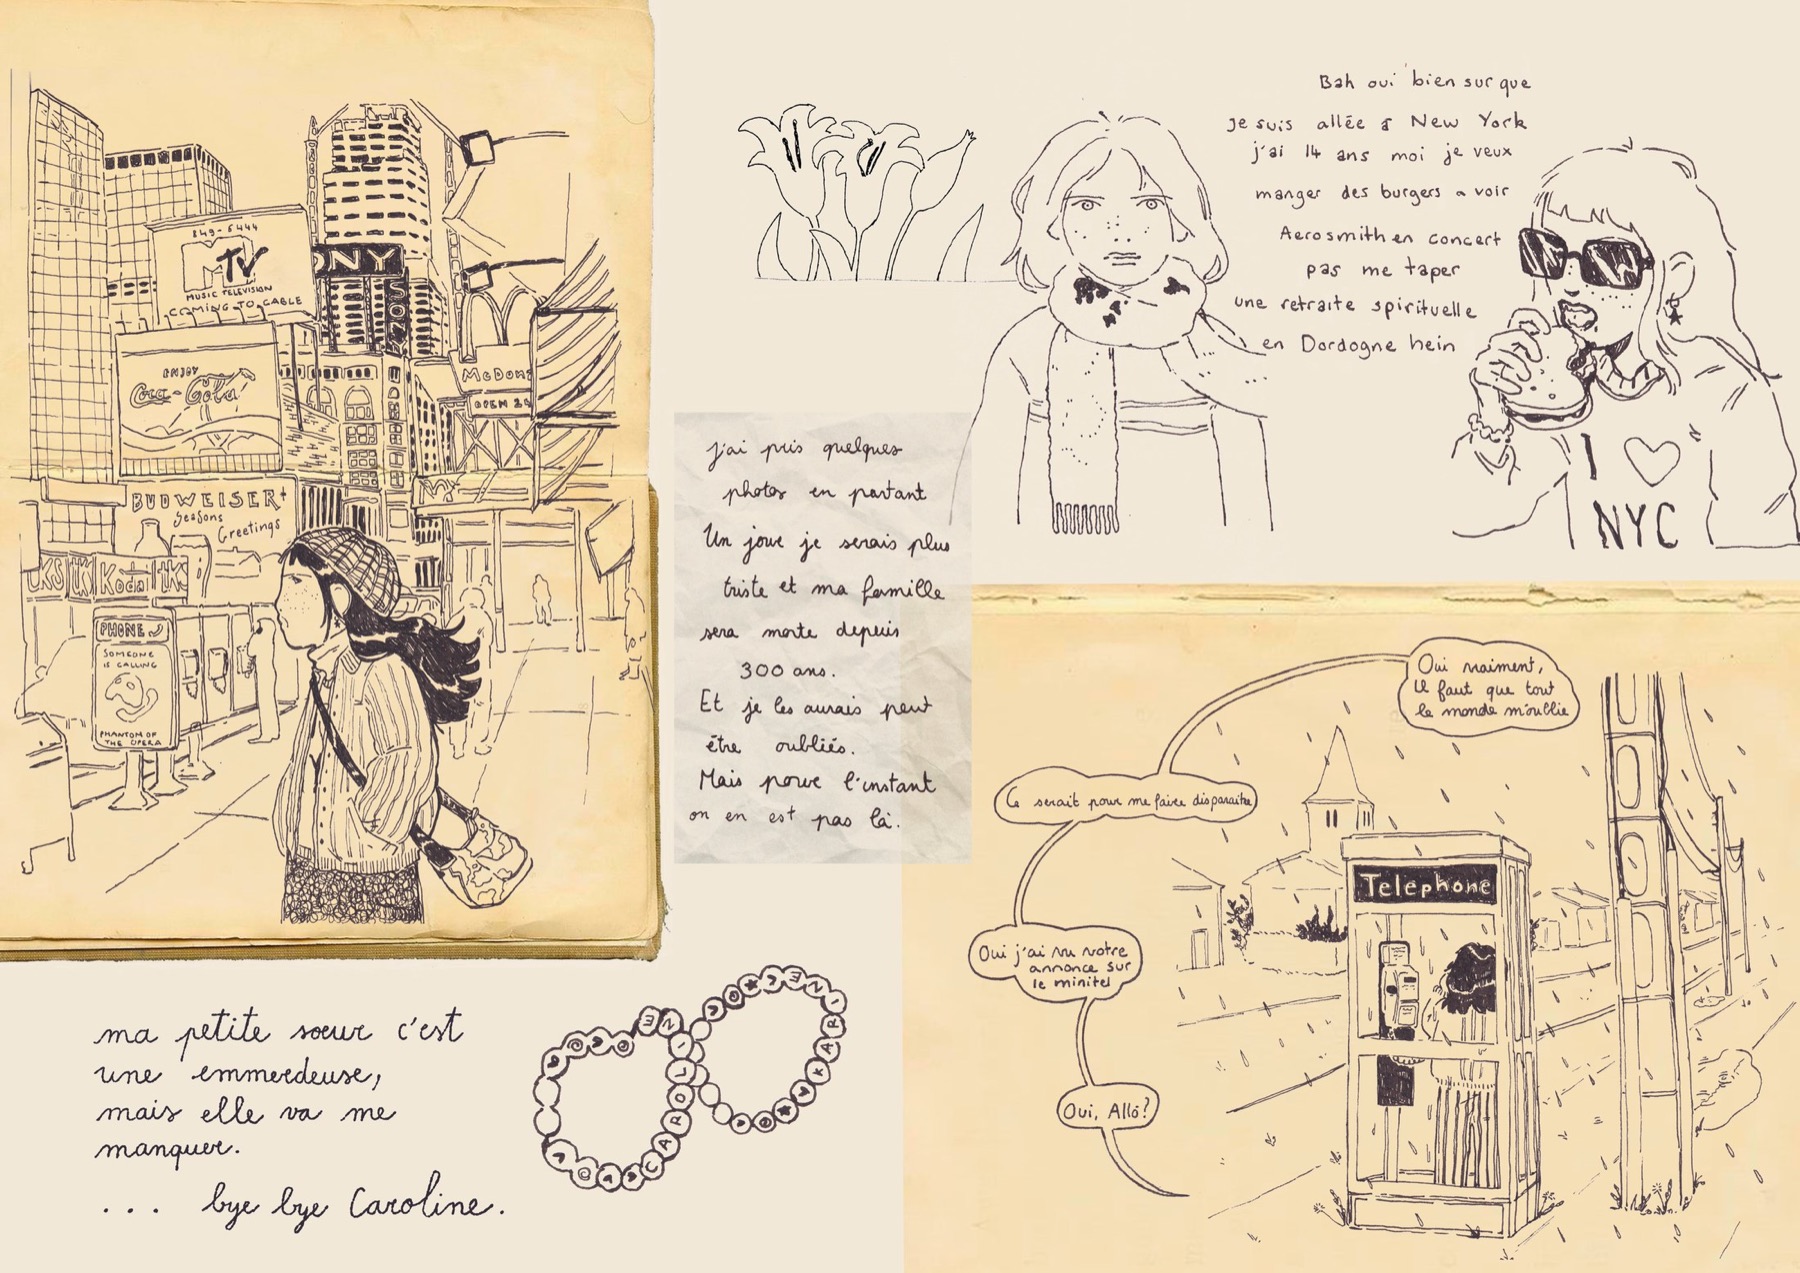 849-5444
MTV
MUSIC TELEVISION
COMING TO CABLE
ONY
SONY
ENJOY
Coca-Cola
McDon
OPEN 24
BUDWEISER
Seasons
Greetings
TKS
tk
Kodal
tks
PHONE
SOMEONE
IS CALLING
PHANTOM OF
THE OPERA
Bah oui bien sur que
Je suis allée à New York
j'ai 14 ans moi je veux
manger des burgers a voir
Aerosmith en concert
pas me taper
une retraite spirituelle
en Dordogne hein
I ♡
NYC
j'ai pris quelques
photos en partant
Un jour je serais plus
triste et ma famille
sera morte depuis
300 ans.
Et je les aurais peut
être oubliés.
Mais pour l'instant
on en est pas là.
Oui vraiment,
Il faut que tout
le monde m'oublie
Ce serait pour me faire disparaitre
Oui j'ai vu votre
annonce sur
le minitel
Oui, Allô?
Téléphone
ma petite sœur c'est
une emmerdeuse,
mais elle va me
manquer.
... bye bye Caroline.
CAROLINE
KARINE